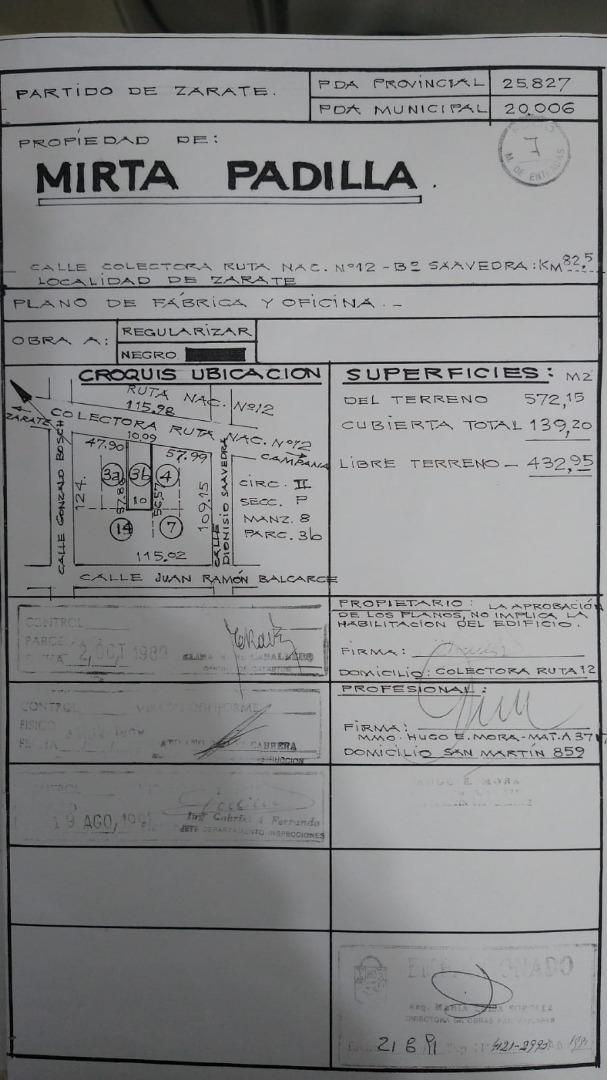 PARTIDO DE ZARATE.
PDA PROVINCIAL 25.827
PDA MUNICIPAL 20.006
PROPIEDAD DE:
MIRTA PADILLA.
7
M. DE ENTRADAS
CALLE COLECTORA RUTA NAC. Nº12 - Bº SAAVEDRA: KM 82,5
LOCALIDAD DE ZARATE
PLANO DE FÁBRICA Y OFICINA.-
OBRA A:
REGULARIZAR
NEGRO
CROQUIS UBICACION
RUTA NAC. Nº12
115.98
ZARATE
COLECTORA RUTA NAC. Nº12
CAMPANA
47.90
10.09
57.99
3a
3b
4
CALLE GONZALO BOSCH
124.
57.88
10
56.57
109.15
CALLE DIONISIO SAAVEDRA
14
7
115.02
CALLE JUAN RAMÓN BALCARCE
CIRC. II
SECC. P
MANZ. 8
PARC. 3b
SUPERFICIES: M2
DEL TERRENO 572,15
CUBIERTA TOTAL 139,20
LIBRE TERRENO - 432,95
PROPIETARIO: LA APROBACIÓN
DE LOS PLANOS, NO IMPLICA LA
HABILITACIÓN DEL EDIFICIO.
FIRMA:
DOMICILIO: COLECTORA RUTA 12
PROFESIONAL:
FIRMA:
MMO. HUGO E. MORA - MAT. A 37
DOMICILIO SAN MARTÍN 859
CONTROL
2 OCT 1989
CABALLERO
CONTROL
CONFORME
FISICO
FECHA
CABRERA
19 AGO. 199
Ing. Gabriel A. Ferrando
JEFE DEPARTAMENTO INSPECCIONES
HUGO E. MORA
ARQ. MARIA
DIRECTORA DE OBRAS PARTICULARES
21 8 91
4121-2993